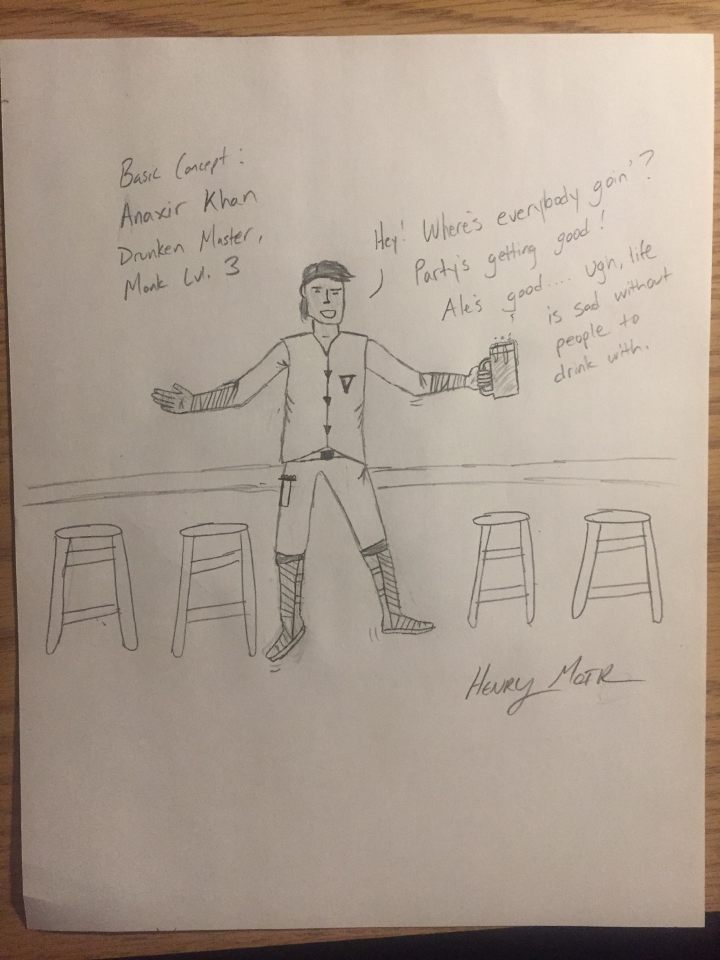 Basic Concept:
Anaxir Khan
Drunken Master,
Monk Lvl. 3
Hey! Where's everybody goin'?
Party's getting good!
Ale's good.... Ugh, life
is sad without
people to
drink with.
Henry